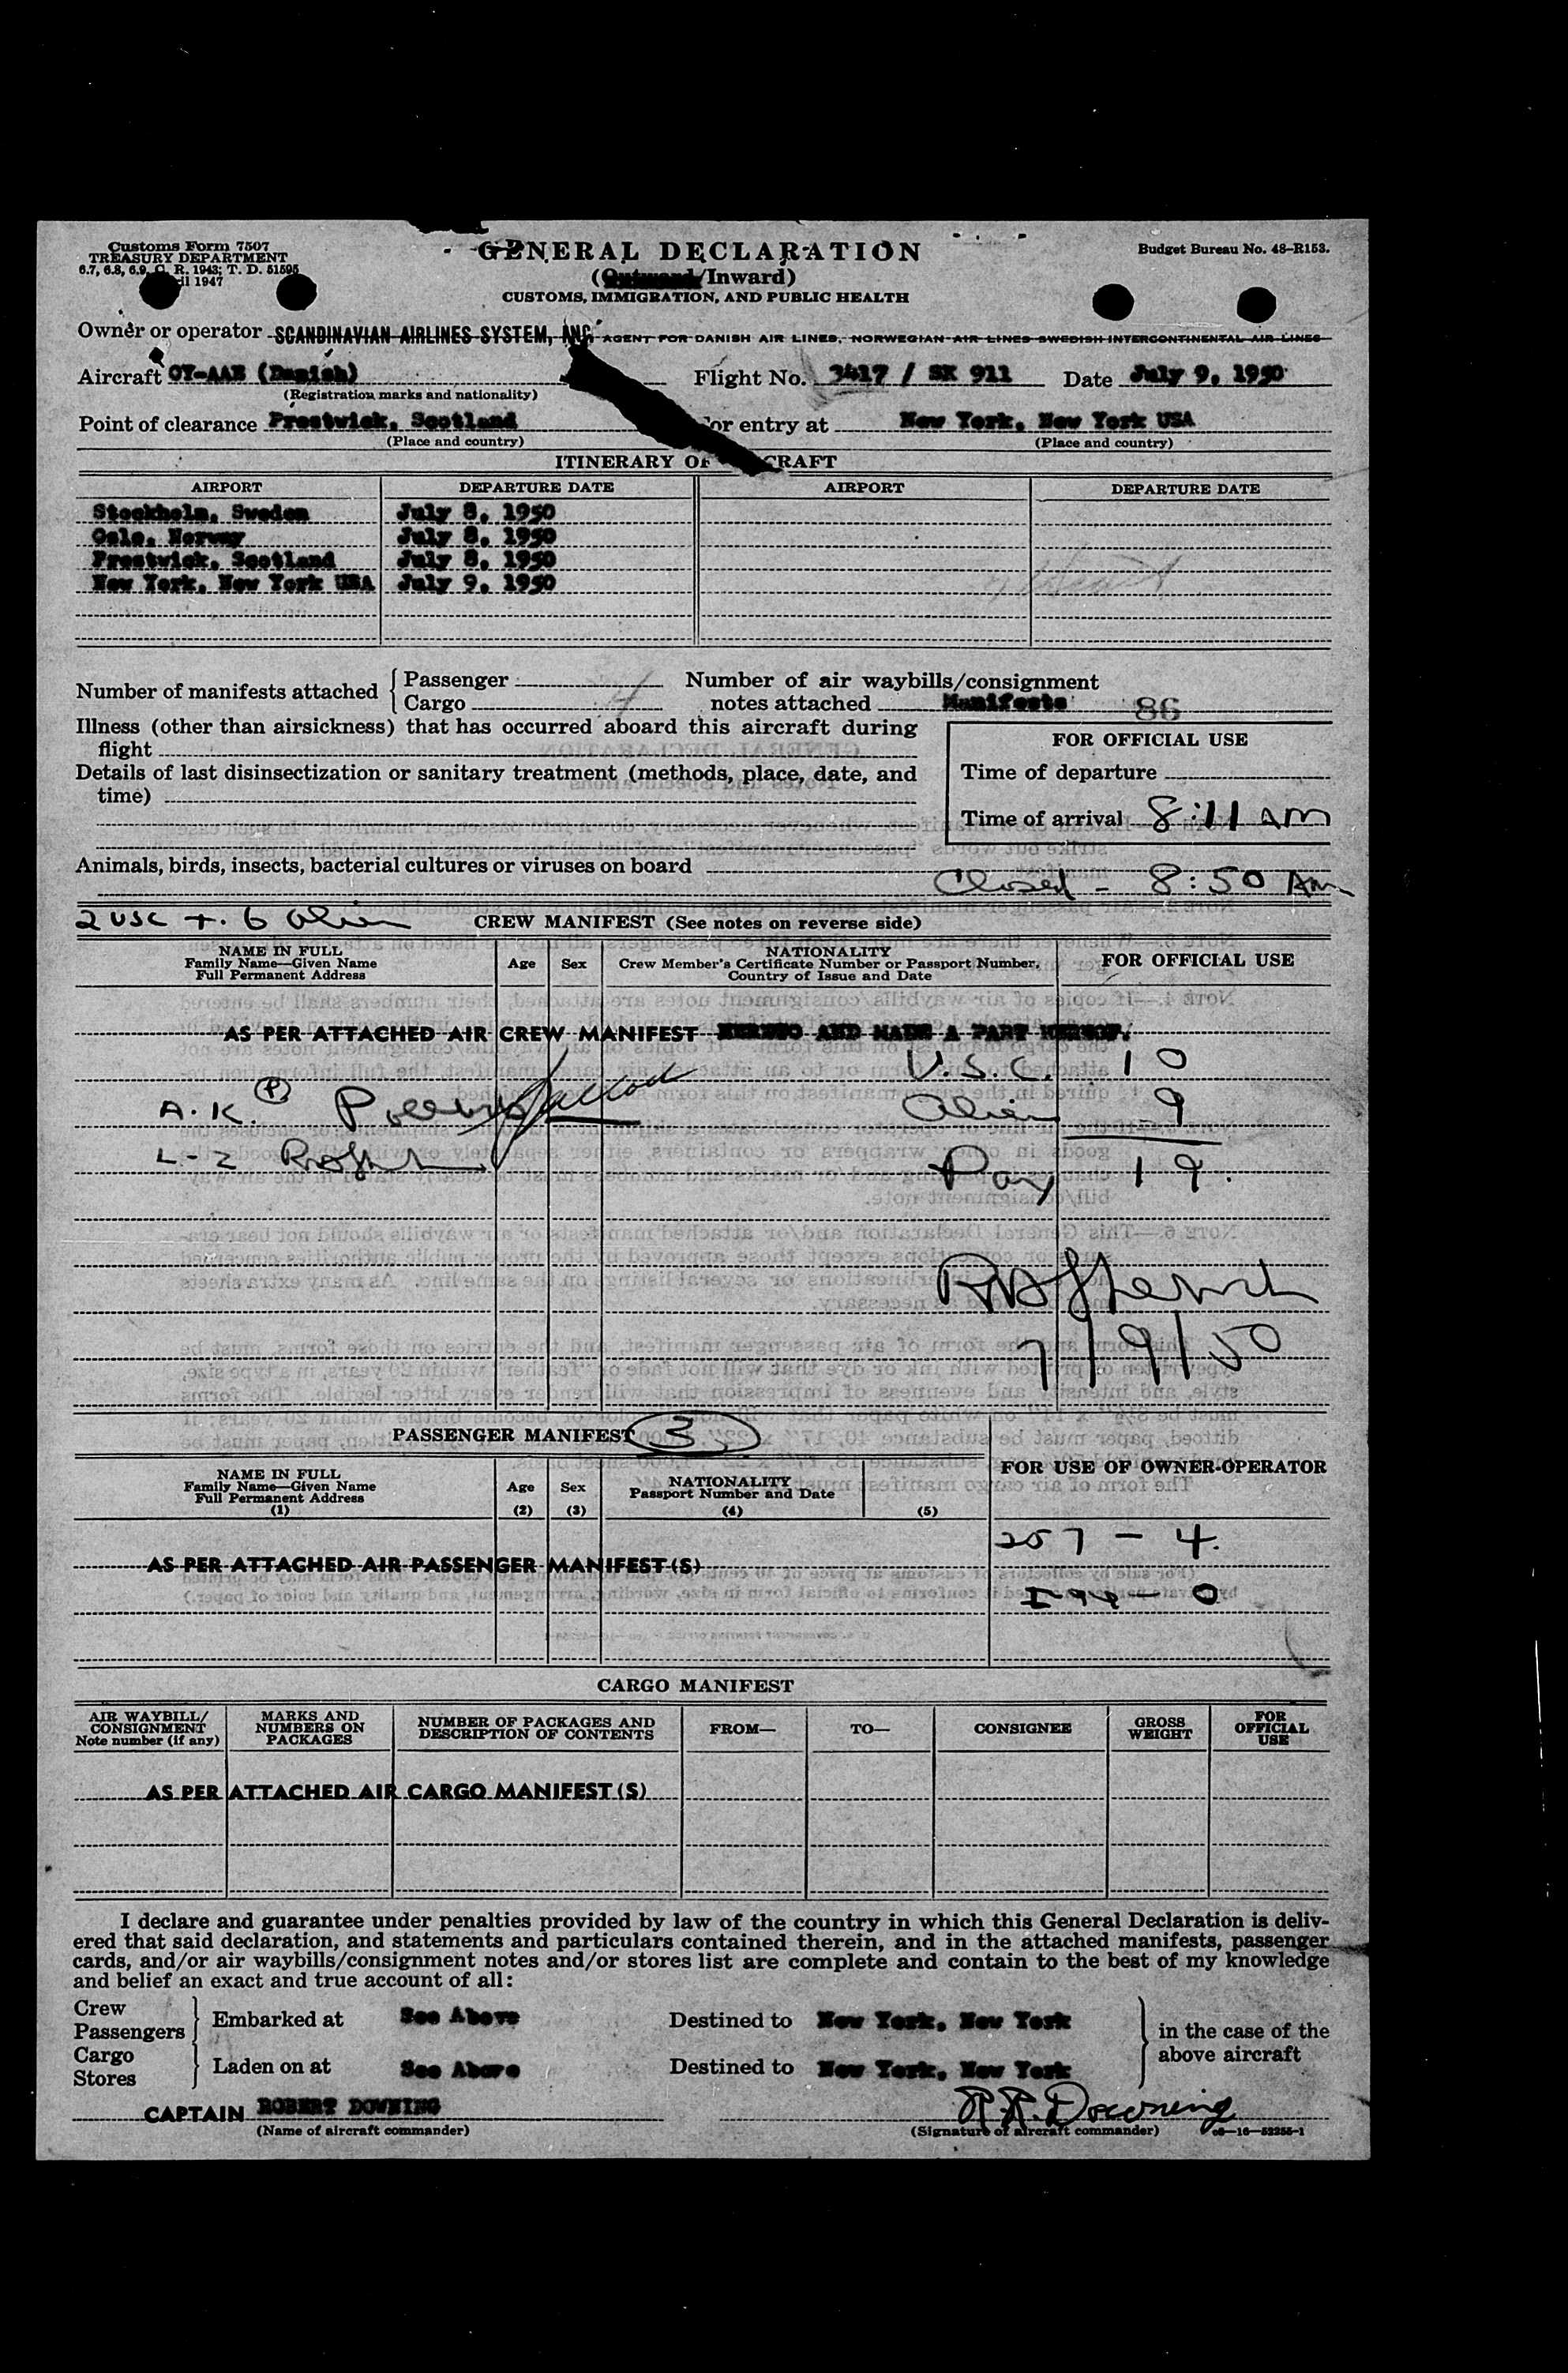 Customs Form 7507
TREASURY DEPARTMENT
6.7, 6.8, 6.9, C. R. 1943; T. D. 51595
1947
GENERAL DECLARATION
(Outward/Inward)
CUSTOMS, IMMIGRATION, AND PUBLIC HEALTH
Budget Bureau No. 48-R153.
Owner or operator SCANDINAVIAN AIRLINES SYSTEM, INC. AGENT FOR DANISH AIR LINES, NORWEGIAN AIR LINES SWEDISH INTERCONTINENTAL AIR LINES
Aircraft (Danish) Flight No. 3417 / SK 911 Date July 9, 1950
(Registration marks and nationality)
Point of clearance Prestwick, Scotland For entry at New York, New York USA
(Place and country) (Place and country)
ITINERARY OF AIRCRAFT
AIRPORT DEPARTURE DATE AIRPORT DEPARTURE DATE
Stockholm, Sweden July 8, 1950
Oslo, Norway July 8, 1950
Prestwick, Scotland July 8, 1950
New York, New York USA July 9, 1950
Number of manifests attached { Passenger Number of air waybills/consignment
Cargo 4 notes attached Manifests 86
Illness (other than airsickness) that has occurred aboard this aircraft during
flight
FOR OFFICIAL USE
Details of last disinsectization or sanitary treatment (methods, place, date, and
time)
Time of departure
Time of arrival 8:11 AM
Animals, birds, insects, bacterial cultures or viruses on board
Closed - 8:50 AM
2 USC + 6 Alien CREW MANIFEST (See notes on reverse side)
NAME IN FULL
Family Name—Given Name
Full Permanent Address
Age Sex
NATIONALITY
Crew Member's Certificate Number or Passport Number,
Country of Issue and Date
FOR OFFICIAL USE
AS PER ATTACHED AIR CREW MANIFEST HERETO AND MADE A PART HEREOF.
U.S.C. 10
A.K. Alien 9
L-2 Pax 19.
7/9/50
PASSENGER MANIFEST 3
NAME IN FULL
Family Name—Given Name
Full Permanent Address
(1)
Age
(2)
Sex
(3)
NATIONALITY
Passport Number and Date
(4)
(5)
FOR USE OF OWNER-OPERATOR
257 - 4.
AS PER ATTACHED AIR PASSENGER MANIFEST(S)
I-94 - 0
CARGO MANIFEST
AIR WAYBILL/
CONSIGNMENT
Note number (if any)
MARKS AND
NUMBERS ON
PACKAGES
NUMBER OF PACKAGES AND
DESCRIPTION OF CONTENTS
FROM—
TO—
CONSIGNEE
GROSS
WEIGHT
FOR
OFFICIAL
USE
AS PER ATTACHED AIR CARGO MANIFEST(S)
I declare and guarantee under penalties provided by law of the country in which this General Declaration is deliv-
ered that said declaration, and statements and particulars contained therein, and in the attached manifests, passenger
cards, and/or air waybills/consignment notes and/or stores list are complete and contain to the best of my knowledge
and belief an exact and true account of all:
Crew
Passengers } Embarked at See Above Destined to New York, New York
Cargo
Stores } Laden on at See Above Destined to New York, New York
in the case of the
above aircraft
CAPTAIN ROBERT DOWNING R.R. Downing
(Name of aircraft commander) (Signature of aircraft commander) 16—52255-1